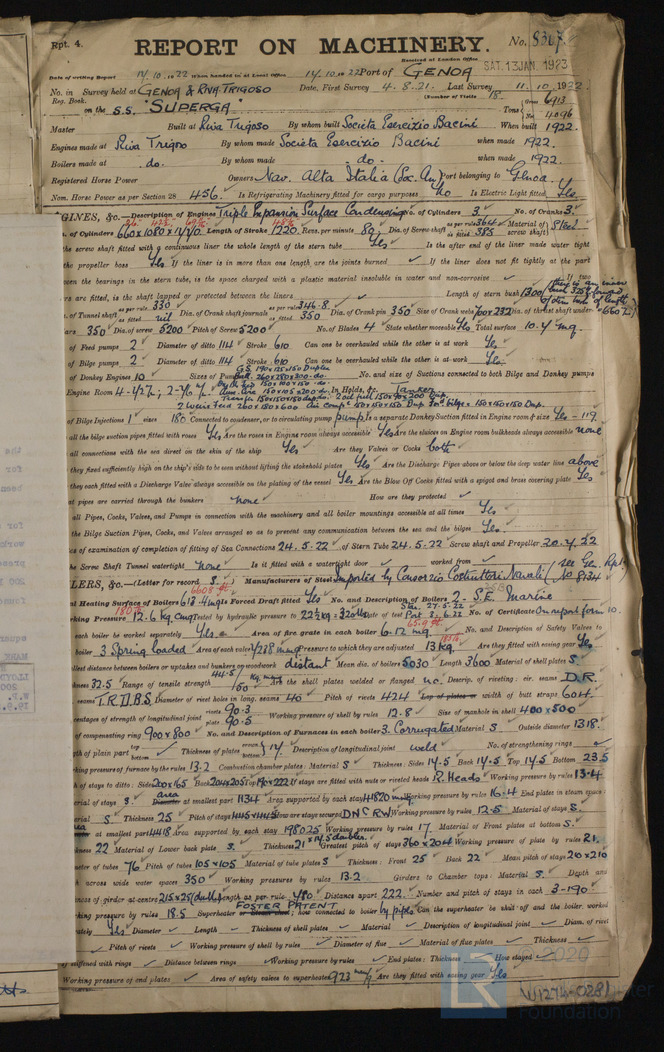 Rpt. 4.
REPORT ON MACHINERY.
No. 8367.
Received at London Office
SAT. 13 JAN. 1923
Date of writing Report 14.10.1922 When handed in at Local Office 14.10.1922 Port of GENOA
No. in Survey held at GENOA & RIVA TRIGOSO Date, First Survey 4.8.21. Last Survey 11.10.1922.
Reg. Book. (Number of Visits 18.
on the S.S. "SUPERGA" Tons Gross 6913
Net 4096
Master Built at Riva Trigoso By whom built Società Esercizio Bacini When built 1922.
Engines made at Riva Trigoso By whom made Società Esercizio Bacini when made 1922.
Boilers made at do. By whom made do. when made 1922.
Registered Horse Power Owners Nav. Alta Italia (Soc. An) Port belonging to Genoa.
Nom. Horse Power as per Section 28 456. Is Refrigerating Machinery fitted for cargo purposes No Is Electric Light fitted Yes
GINES, &c.—Description of Engines Triple Expansion Surface Condensing No. of Cylinders 3. No. of Cranks 3.
. of Cylinders 660 x 1080 x 1770 Length of Stroke 1220 Revs. per minute 80 Dia. of Screw shaft as per rule 364 Material of Steel
as fitted 385 screw shaft
the screw shaft fitted with a continuous liner the whole length of the stern tube Yes Is the after end of the liner made water tight
the propeller boss Yes If the liner is in more than one length are the joints burned ✓ If the liner does not fit tightly at the part
ween the bearings in the stern tube, is the space charged with a plastic material insoluble in water and non-corrosive ✓ If two
rs are fitted, is the shaft lapped or protected between the liners Length of stern bush 1300
of Tunnel shaft as per rule 330 as fitted nil Dia. of Crank shaft journals as per rule 346.8 as fitted 350 Dia. of Crank pin 350 Size of Crank webs 700x232 Dia. of thrust shaft under
ars 350 Dia. of screw 5200 Pitch of Screw 5200 No. of Blades 4 State whether moveable Yes Total surface 10.4 mq.
of Feed pumps 2 Diameter of ditto 114 Stroke 610 Can one be overhauled while the other is at work Yes
of Bilge pumps 2 Diameter of ditto 114 Stroke 610 Can one be overhauled while the other is at work Yes
of Donkey Engines 10 Sizes of Pumps No. and size of Suctions connected to both Bilge and Donkey pumps
Engine Room In Holds, &c. Tanker
2 Weirs feed 260 x 150 x 600
of Bilge Injections 1 sizes 180 Connected to condenser, or to circulating pump pump Is a separate Donkey Suction fitted in Engine room & size Yes - 119.
all the bilge suction pipes fitted with roses Yes Are the roses in Engine room always accessible Yes Are the sluices on Engine room bulkheads always accessible none
all connections with the sea direct on the skin of the ship Yes Are they Valves or Cocks both
they fixed sufficiently high on the ship's side to be seen without lifting the stokehold plates Yes Are the Discharge Pipes above or below the deep water line above
they each fitted with a Discharge Valve always accessible on the plating of the vessel Yes Are the Blow Off Cocks fitted with a spigot and brass covering plate Yes
at pipes are carried through the bunkers none How are they protected ✓
all Pipes, Cocks, Valves, and Pumps in connection with the machinery and all boiler mountings accessible at all times Yes
the Bilge Suction Pipes, Cocks, and Valves arranged so as to prevent any communication between the sea and the bilges Yes.
es of examination of completion of fitting of Sea Connections 24.5.22 of Stern Tube 24.5.22 Screw shaft and Propeller 20.7.22
he Screw Shaft Tunnel watertight none Is it fitted with a watertight door ✓ worked from ✓ (see Gen. Rpt No 8134
LERS, &c.—(Letter for record S.) Manufacturers of Steel Imported by Consorzio Costruttori Navali
al Heating Surface of Boilers 613.4 mq Is Forced Draft fitted Yes No. and Description of Boilers 2 - S.E. marine
rking Pressure 12.6 kg Tested by hydraulic pressure to 22½ kg = 320 lbs Date of test No. of Certificate On report form 10.
each boiler be worked separately Yes Area of fire grate in each boiler 6.12 mq. No. and Description of Safety Valves to
boiler 3 Spring loaded Area of each valve Pressure to which they are adjusted 13 kg Are they fitted with easing gear Yes
llest distance between boilers or uptakes and bunkers or woodwork distant Mean dia. of boilers 5030 Length 3600 Material of shell plates S.
kness 32.5 Range of tensile strength 44.5/50 kg. Are the shell plates welded or flanged no. Descrip. of riveting: cir. seams D.R.
seams T.R.D.B.S. Diameter of rivet holes in long. seams 40 Pitch of rivets 424 Lap of plates or width of butt straps 604.
centages of strength of longitudinal joint rivets 90.3 Working pressure of shell by rules 12.8 Size of manhole in shell 400 x 500
plate 90.5
of compensating ring 900 x 800 No. and Description of Furnaces in each boiler 3. Corrugated Material S Outside diameter 1318.
gth of plain part top bottom Thickness of plates crown bottom 14 Description of longitudinal joint weld No. of strengthening rings
king pressure of furnace by the rules 13.2 Combustion chamber plates: Material S Thickness: Sides 14.5 Back 14.5 Top 14.5 Bottom 23.5
h of stays to ditto: Sides 220 x 165 Back 204 x 205 If stays are fitted with nuts or riveted heads R. Heads Working pressure by rules 13.4
erial of stays S. area Diameter at smallest part 1134 Area supported by each stay 41820 Working pressure by rules 16.4 End plates in steam space:
erial S. Thickness 25 Pitch of stays 445 x 445 How are stays secured DNC RW Working pressure by rules 12.5 Material of stays S.
at smallest part 4418 Area supported by each stay 198025 Working pressure by rules 17. Material of Front plates at bottom S.
kness 22 Material of Lower back plate S. Thickness 21 Greatest pitch of stays 360 x 204 Working pressure of plate by rules 21.
meter of tubes 76 Pitch of tubes 105 x 105 Material of tube plates S Thickness: Front 25 Back 22 Mean pitch of stays 210 x 210
h across wide water spaces 350 Working pressures by rules 13.2 Girders to Chamber tops: Material S. Depth and
ness of girder at centre 215 x 25 (double) Length as per rule 780 Distance apart 222. Number and pitch of stays in each 3-190
rking pressure by rules 18.5 Superheater FOSTER PATENT or Steam chest; how connected to boiler by pipes Can the superheater be shut off and the boiler worked
rately Yes Diameter ✓ Length ✓ Thickness of shell plates ✓ Material ✓ Description of longitudinal joint ✓ Diam. of rivet
✓ Pitch of rivets ✓ Working pressure of shell by rules ✓ Diameter of flue ✓ Material of flue plates ✓ Thickness ✓
stiffened with rings ✓ Distance between rings ✓ Working pressure by rules ✓ End plates: Thickness ✓ How stayed ✓
Working pressure of end plates ✓ Area of safety valves to superheater 923 Are they fitted with easing gear Yes
© 2020
LR
Foundation
W1274-0281